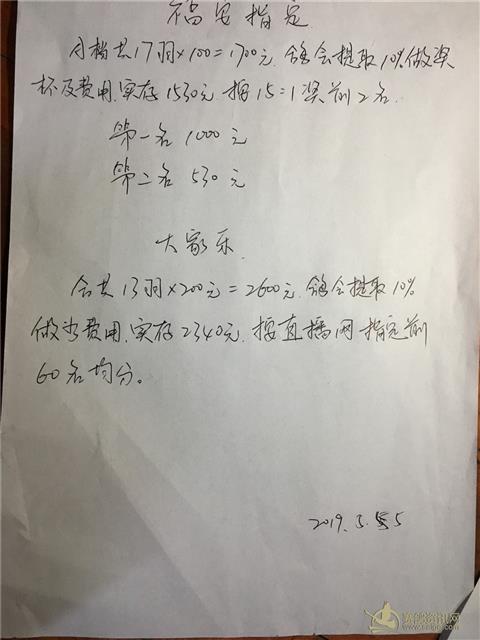 福安指定
月档共17羽×100=1700元.鸽会提取10%做奖
杯及费用.实存1530元.按15=1奖前2名.
第一名 1000元
第二名 530元
大家乐.
合共13羽×200元=2600元.鸽会提取10%
做为费用.实存2340元.按直播网指定前
60名均分。
2019.5.5